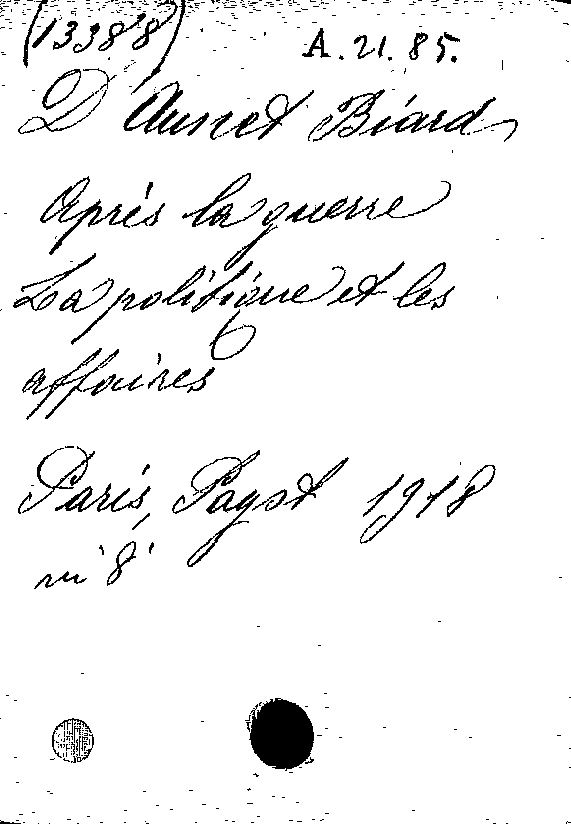 (13388)
A.21.85.
D'Aunet Biard
Après la guerre
La politique et les
affaires
Paris, Payot 1918
in 8°